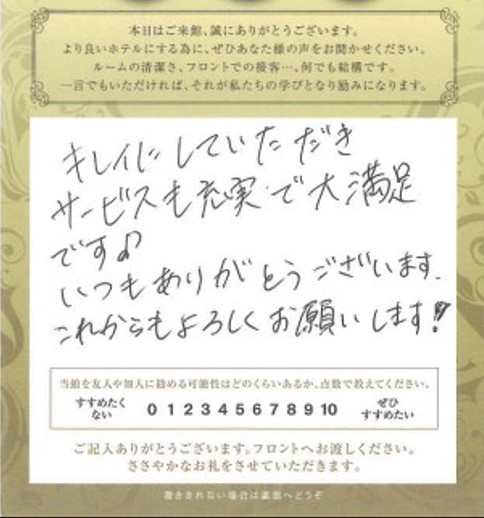 本日はご来館、誠にありがとうございます。
より良いホテルにする為に、ぜひあなた様の声をお聞かせください。
ルームの清潔さ、フロントでの接客…、何でも結構です。
一言でもいただければ、それが私たちの学びとなり励みになります。
キレイにしていただき
サービスも充実で大満足
です♪
いつもありがとうございます.
これからもよろしくお願いします!!
当館を友人や知人に勧める可能性はどのくらいあるか、点数で教えてください。
すすめたくない 0 1 2 3 4 5 6 7 8 9 10 ぜひすすめたい
ご記入ありがとうございます。フロントへお渡しください。
ささやかなお礼をさせていただきます。
書ききれない場合は裏面へどうぞ